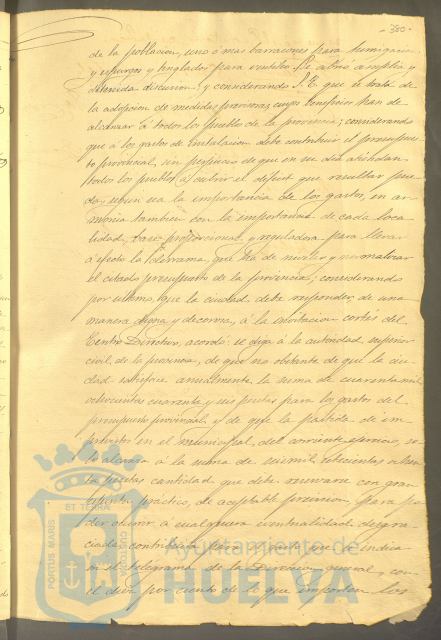 380.
de la poblacion, uno ó mas barracones para fumigacion
y espurgos y tinglados para ventileo. Se abrió amplia y
detenida discusion; y considerando S. E. que se trata de
la adopcion de medidas previsoras cuyos beneficios han de
alcanzar á todos los pueblos de la provincia; considerando
que á los gastos de instalacion debe contribuir el presupues-
to provincial, sin perjuicio de que en su dia atiendan
todos los pueblos á cubrir el deficit que resultar pue-
da, segun sea la importancia de los gastos, en ar-
monia tambien con la importancia de cada loca-
lidad, base proporcional y reguladora para llevar
á efecto la derrama, que ha de nivelar y normalizar
el citado presupuesto de la provincia; considerando
por ultimo, que la ciudad debe responder, de una
manera digna y decorosa, á la invitacion cortés del
Centro Directivo, acordó: se diga á la autoridad superior
civil de la provincia, de que no obstante de que la ciu-
dad satisface anualmente la suma de cuarenta mil
ochocientas cuarenta y seis pesetas para los gastos del
presupuesto provincial, y de que la partida de im-
previstos en el municipal, del corriente ejercicio, so-
lo alcanza á la suma de seis mil setecientas ochen-
ta pesetas cantidad que debe reservarse con gran
espiritu práctico, de aceptable prevision, para po-
der ocurrir á cualquiera eventualidad desgra-
ciada, contribuirá para el objeto que se indica
en el telegrama de la Direccion general, con
el diez por ciento de lo que importen los
ET TERRA
PORTUS MARIS
CUSTODIA
Ayuntamiento de
HUELVA